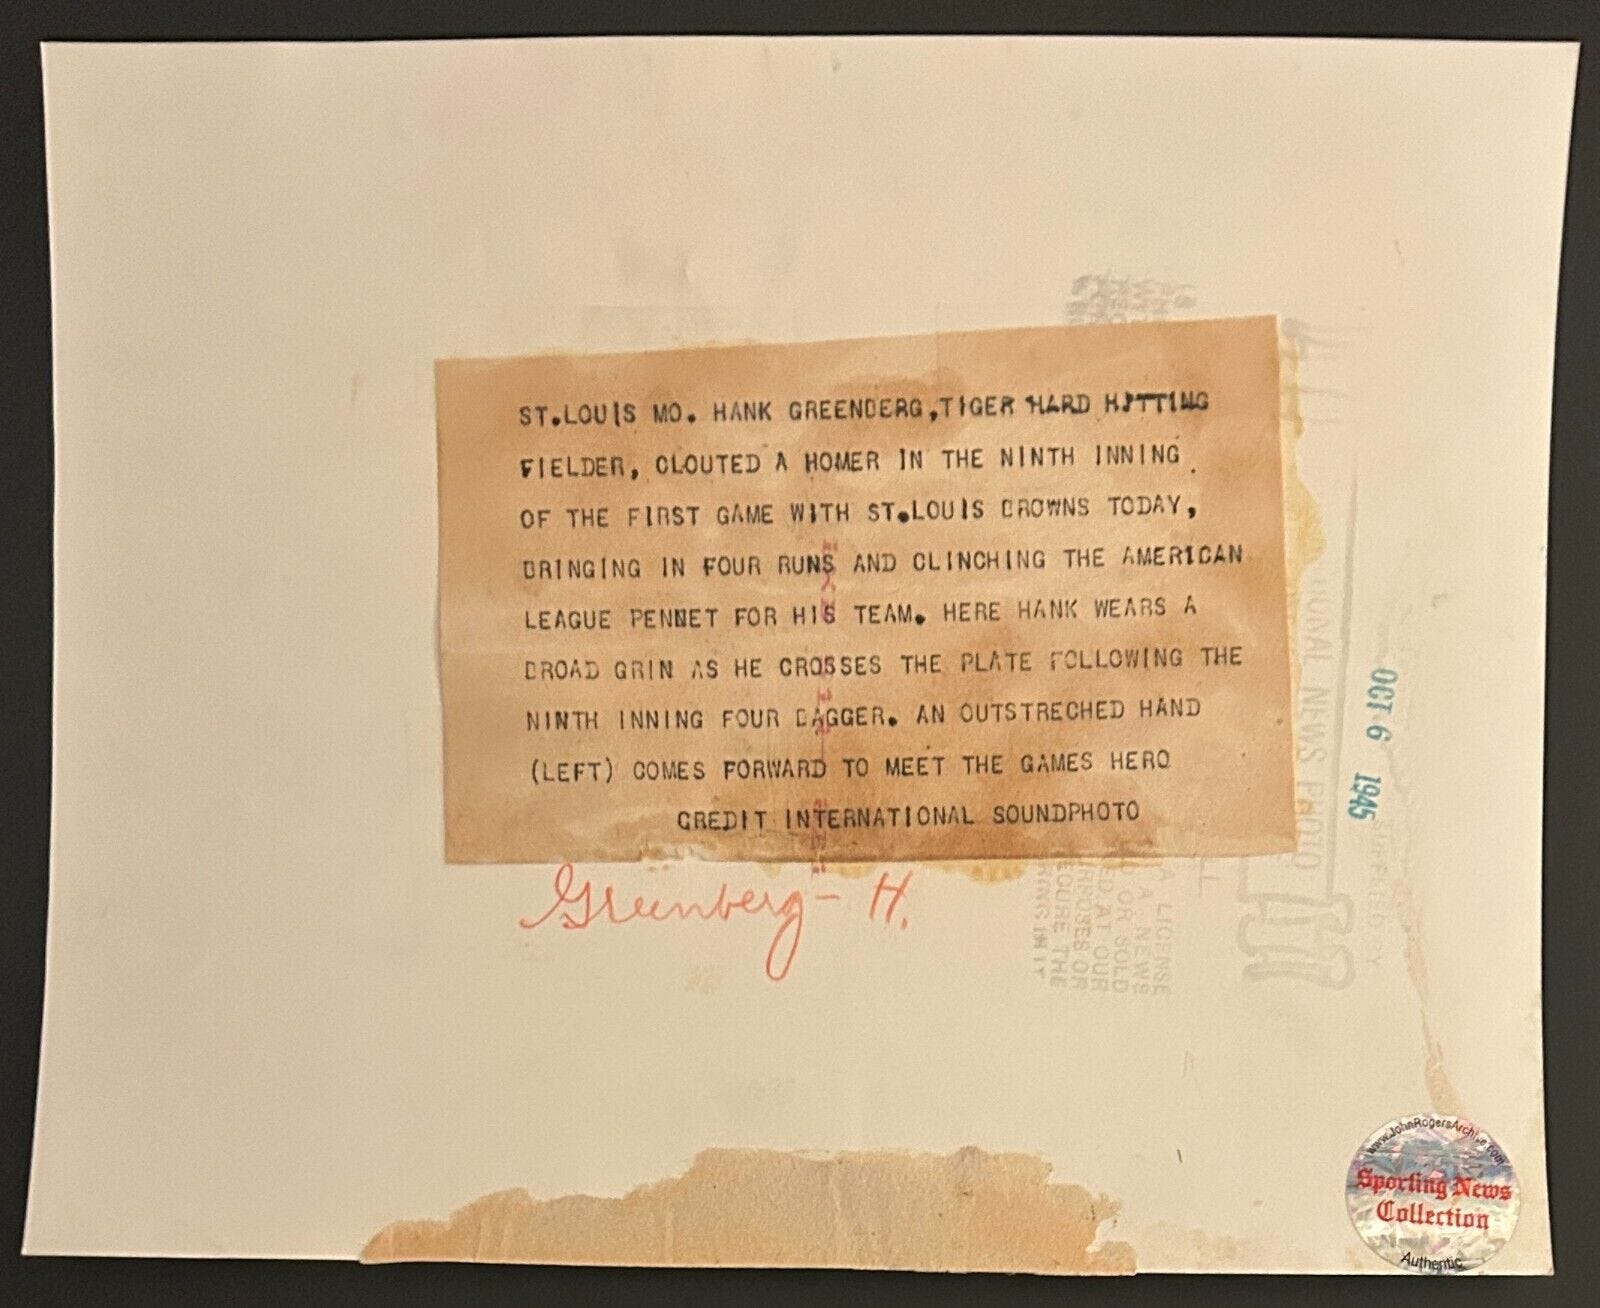 ST.LOUIS MO. HANK GREENBERG,TIGER HARD HITTING
FIELDER, CLOUTED A HOMER IN THE NINTH INNING
OF THE FIRST GAME WITH ST.LOUIS BROWNS TODAY,
BRINGING IN FOUR RUNS AND CLINCHING THE AMERICAN
LEAGUE PENNET FOR HIS TEAM. HERE HANK WEARS A
BROAD GRIN AS HE CROSSES THE PLATE FOLLOWING THE
NINTH INNING FOUR BAGGER. AN OUTSTRECHED HAND
(LEFT) COMES FORWARD TO MEET THE GAMES HERO
CREDIT INTERNATIONAL SOUNDPHOTO
Greenberg - H.
OCT 6 1945
NEWS PHOTO
SUPPLIED BY
A LICENSE
A. NEWS
OR SOLD
AT OUR
OR
THE
www.JohnRogersArchive.com
Sporting News
Collection
Authentic